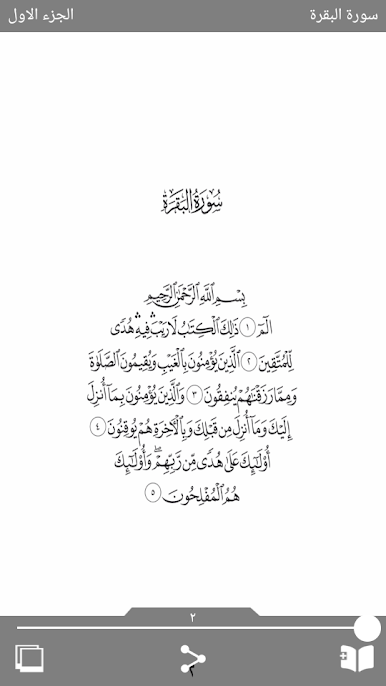 سورة البقرة
الجزء الاول
سُورَةُ البَقَرَةِ
بِسْمِ اللَّهِ الرَّحْمَٰنِ الرَّحِيمِ
الٓمٓ ١ ذَٰلِكَ الْكِتَٰبُ لَا رَيْبَ ۛ فِيهِ ۛ هُدًى
لِّلْمُتَّقِينَ ٢ الَّذِينَ يُؤْمِنُونَ بِالْغَيْبِ وَيُقِيمُونَ الصَّلَوٰةَ
وَمِمَّا رَزَقْنَٰهُمْ يُنفِقُونَ ٣ وَالَّذِينَ يُؤْمِنُونَ بِمَآ أُنزِلَ
إِلَيْكَ وَمَآ أُنزِلَ مِن قَبْلِكَ وَبِالْءَاخِرَةِ هُمْ يُوقِنُونَ ٤
أُوْلَٰٓئِكَ عَلَىٰ هُدًى مِّن رَّبِّهِمْ ۖ وَأُوْلَٰٓئِكَ
هُمُ الْمُفْلِحُونَ ٥
٢
٢